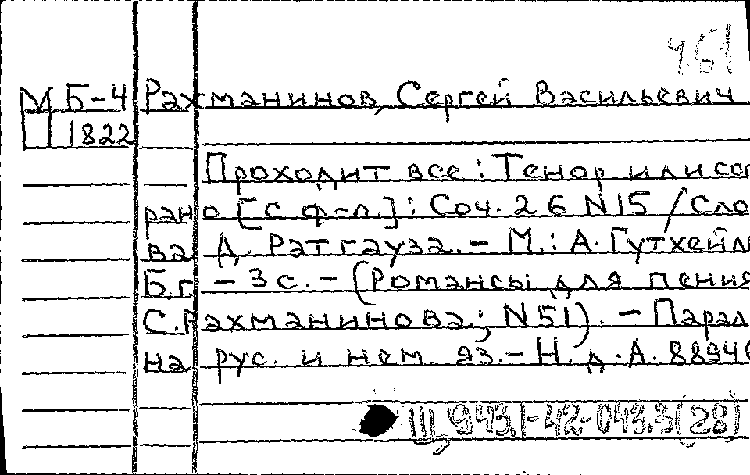 461
М Б-4 Рахманинов, Сергей Васильевич
1822
Проходит все: Тенор или соп
рано [с ф-п.]: Соч. 26 N15 / Сло
ва Д. Ратгауза. – М.: А. Гутхейль
Б.г. – 3 с. – (Романсы для пения
С. Рахманинова; N51). – Парал
на рус. и нем. яз. – Н. д. А. 8894
Щ 943.1-42-043.3(28)